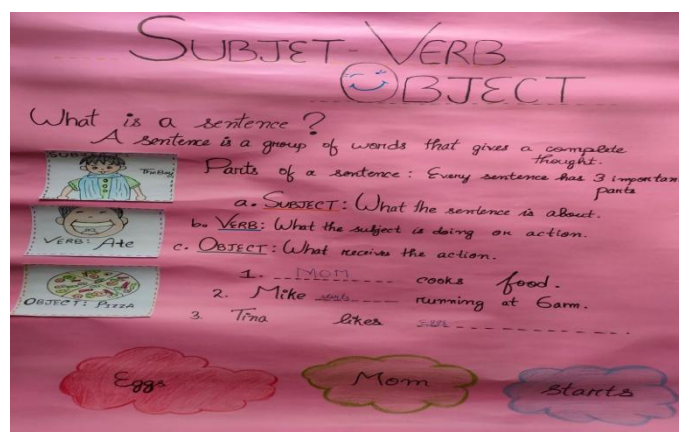 SUBJET-VERB
OBJECT
What is a sentence?
A sentence is a group of words that gives a complete
thought.
Parts of a sentence: Every sentence has 3 importan
parts
SUB
The Boy
a. SUBJECT: What the sentence is about.
VERB: Ate
b. VERB: What the subject is doing or action.
c. OBJECT: What receives the action.
OBJECT: PIZZA
1. MOM cooks food.
2. Mike running at 6am.
3. Tina likes
Eggs
Mom
starts